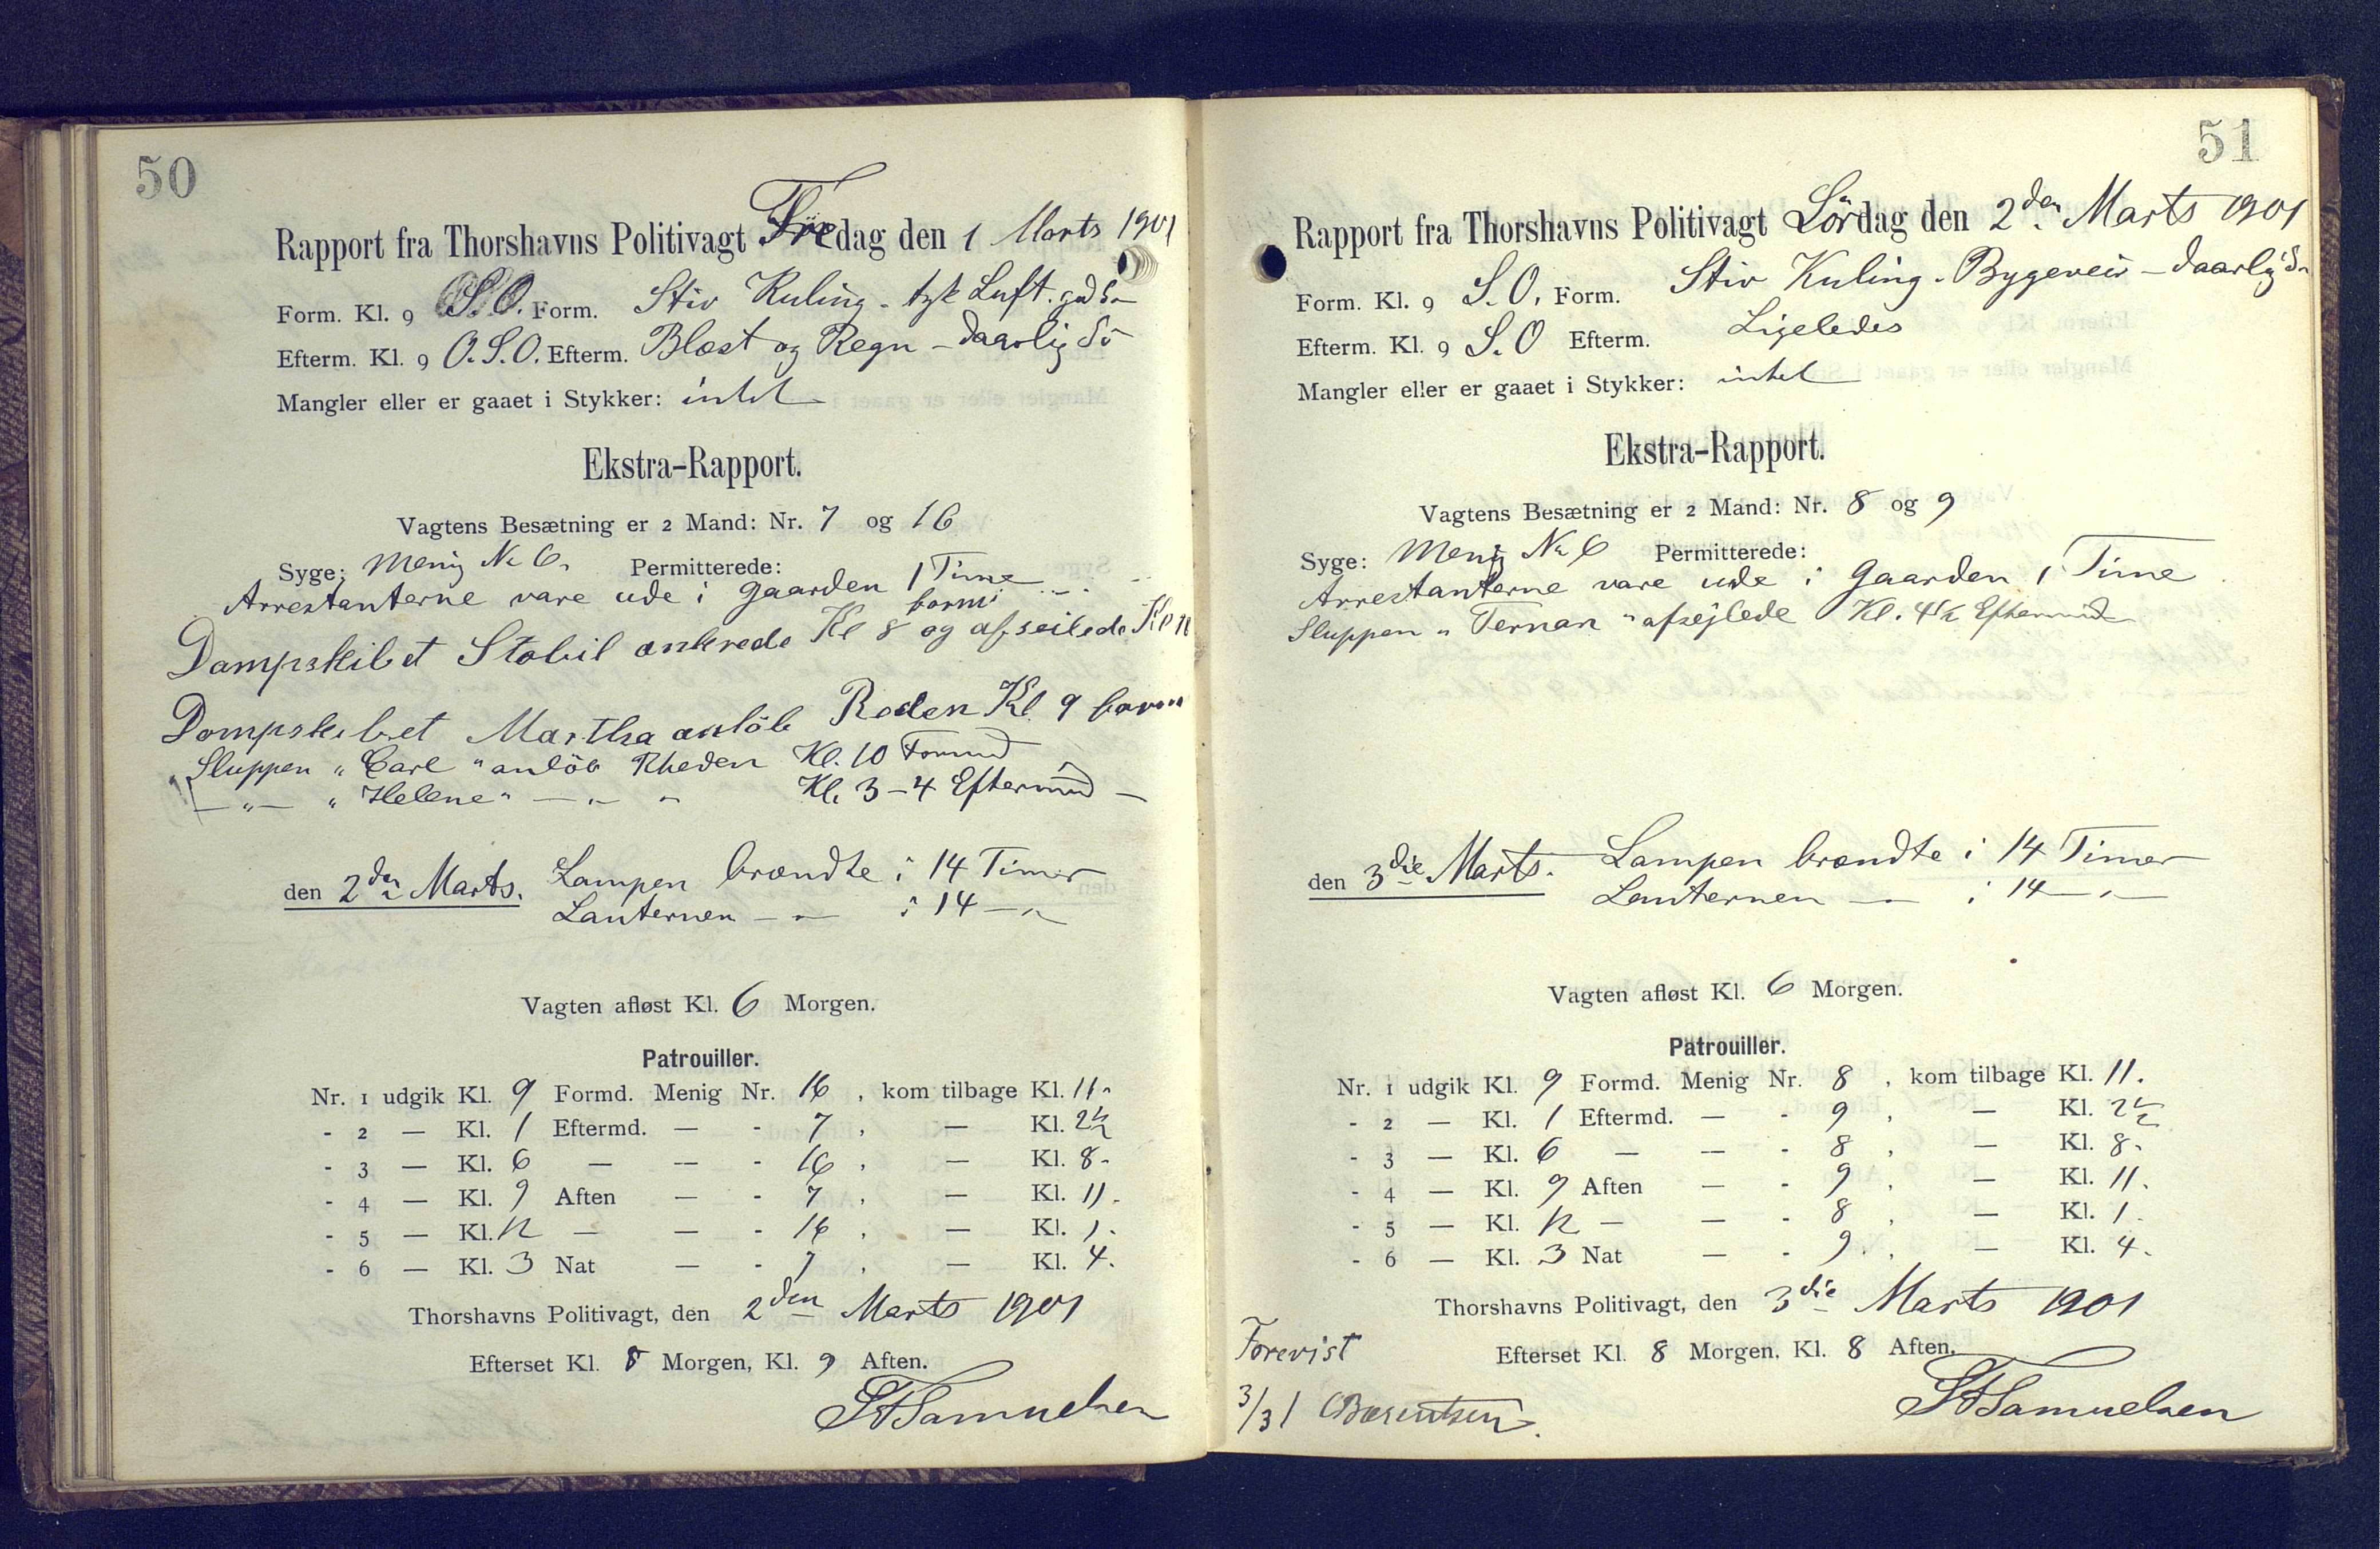 50
Rapport fra Thorshavns Politivagt Fredag den 1 Marts 1901
Form. Kl. 9 S.O. Form. Stiv Kuling - tyk Luft. god Sö
Efterm. Kl. 9 O.S.O. Efterm. Blæst og Regn - daarlig Sö
Mangler eller er gaaet i Stykker: intet
Ekstra-Rapport.
Vagtens Besætning er 2 Mand: Nr. 7 og 16
Syge: Menig Nr 6. Permitterede:
Arrestanterne vare ude i Gaarden 1 Time
Dampskibet Stabil ankrede Kl 8 form og afseilede Kl
Dampskibet Martha anlöb Reden Kl. 9 form
Sluppen "Carl" anlöb Rheden Kl. 10 Formd
— " — "Helene" — " — " Kl. 3-4 Eftermd —
den 2den Marts. Lampen brændte i 14 Timer
Lanternen — " — i 14 — " —
Vagten afløst Kl. 6 Morgen.
Patrouiller.
Nr. 1 udgik Kl. 9 Formd. Menig Nr. 16, kom tilbage Kl. 11.
- 2 — Kl. 1 Eftermd. — - 7, — Kl. 2½
- 3 — Kl. 6 — — - 16, — Kl. 8.
- 4 — Kl. 9 Aften — - 7, — Kl. 11.
- 5 — Kl. 12 — — - 16, — Kl. 1.
- 6 — Kl. 3 Nat — - 7, — Kl. 4.
Thorshavns Politivagt, den 2den Marts 1901
Efterset Kl. 8 Morgen, Kl. 9 Aften.
Samuelsen
51
Rapport fra Thorshavns Politivagt Lördag den 2den Marts 1901
Form. Kl. 9 S.O. Form. Stiv Kuling - Bygeveir - daarlig Sö
Efterm. Kl. 9 S.O Efterm. Ligeledes
Mangler eller er gaaet i Stykker: intet
Ekstra-Rapport.
Vagtens Besætning er 2 Mand: Nr. 8 og 9
Syge: Menig Nr 6 Permitterede:
Arrestanterne vare ude i Gaarden 1 Time
Sluppen "Ternan" afsejlede Kl. 4½ Eftermd
den 3die Marts. Lampen brændte i 14 Timer
Lanternen — " — i 14 — " —
Vagten afløst Kl. 6 Morgen.
Patrouiller.
Nr. 1 udgik Kl. 9 Formd. Menig Nr. 8, kom tilbage Kl. 11.
- 2 — Kl. 1 Eftermd. — - 9, — Kl. 2½
- 3 — Kl. 6 — — - 8, — Kl. 8.
- 4 — Kl. 9 Aften — - 9, — Kl. 11.
- 5 — Kl. 12 — — - 8, — Kl. 1.
- 6 — Kl. 3 Nat — - 9, — Kl. 4.
Thorshavns Politivagt, den 3die Marts 1901
Efterset Kl. 8 Morgen, Kl. 8 Aften.
Samuelsen
Forevist
3/3 1 CBærentsen.